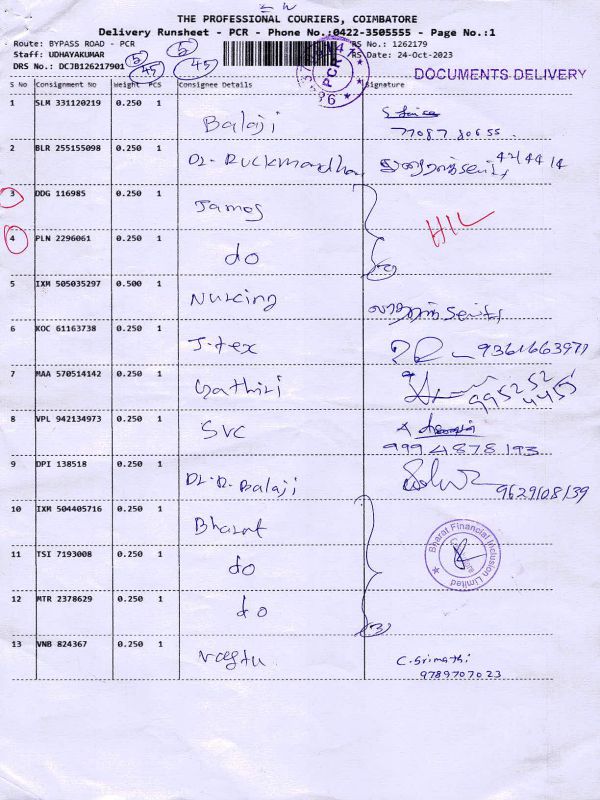 THE PROFESSIONAL COURIERS, COIMBATORE
Delivery Runsheet - PCR - Phone No.:0422-3505555 - Page No.:1
Route: BYPASS ROAD - PCR RS No.: 1262179
Staff: UDHAYAKUMAR RS Date: 24-Oct-2023
DRS No.: DCJB126217901 5 45 5 45 PCR DOCUMENTS DELIVERY
S No Consignment No Weight PCS Consignee Details Signature
1 SLM 331120219 0.250 1 Balaji
2 BLR 255155098 0.250 1 Dr. 
3 DDG 116985 0.250 1 James HIL
4 PLN 2296061 0.250 1 do
5 IXM 505035297 0.500 1 Nursing
6 KOC 61163738 0.250 1 J-tex
7 MAA 570514142 0.250 1 995252 4455
8 VPL 942134973 0.250 1 SVC
9994878193
9 DPI 138518 0.250 1 Dr. R. Balaji 9629108139
10 IXM 504405716 0.250 1 Bharat
Bharat Financial Inclusion Limited
11 TSI 7193008 0.250 1 do
12 MTR 2378629 0.250 1 do
13 VNB 824367 0.250 1 C. Srimathi
9789707023